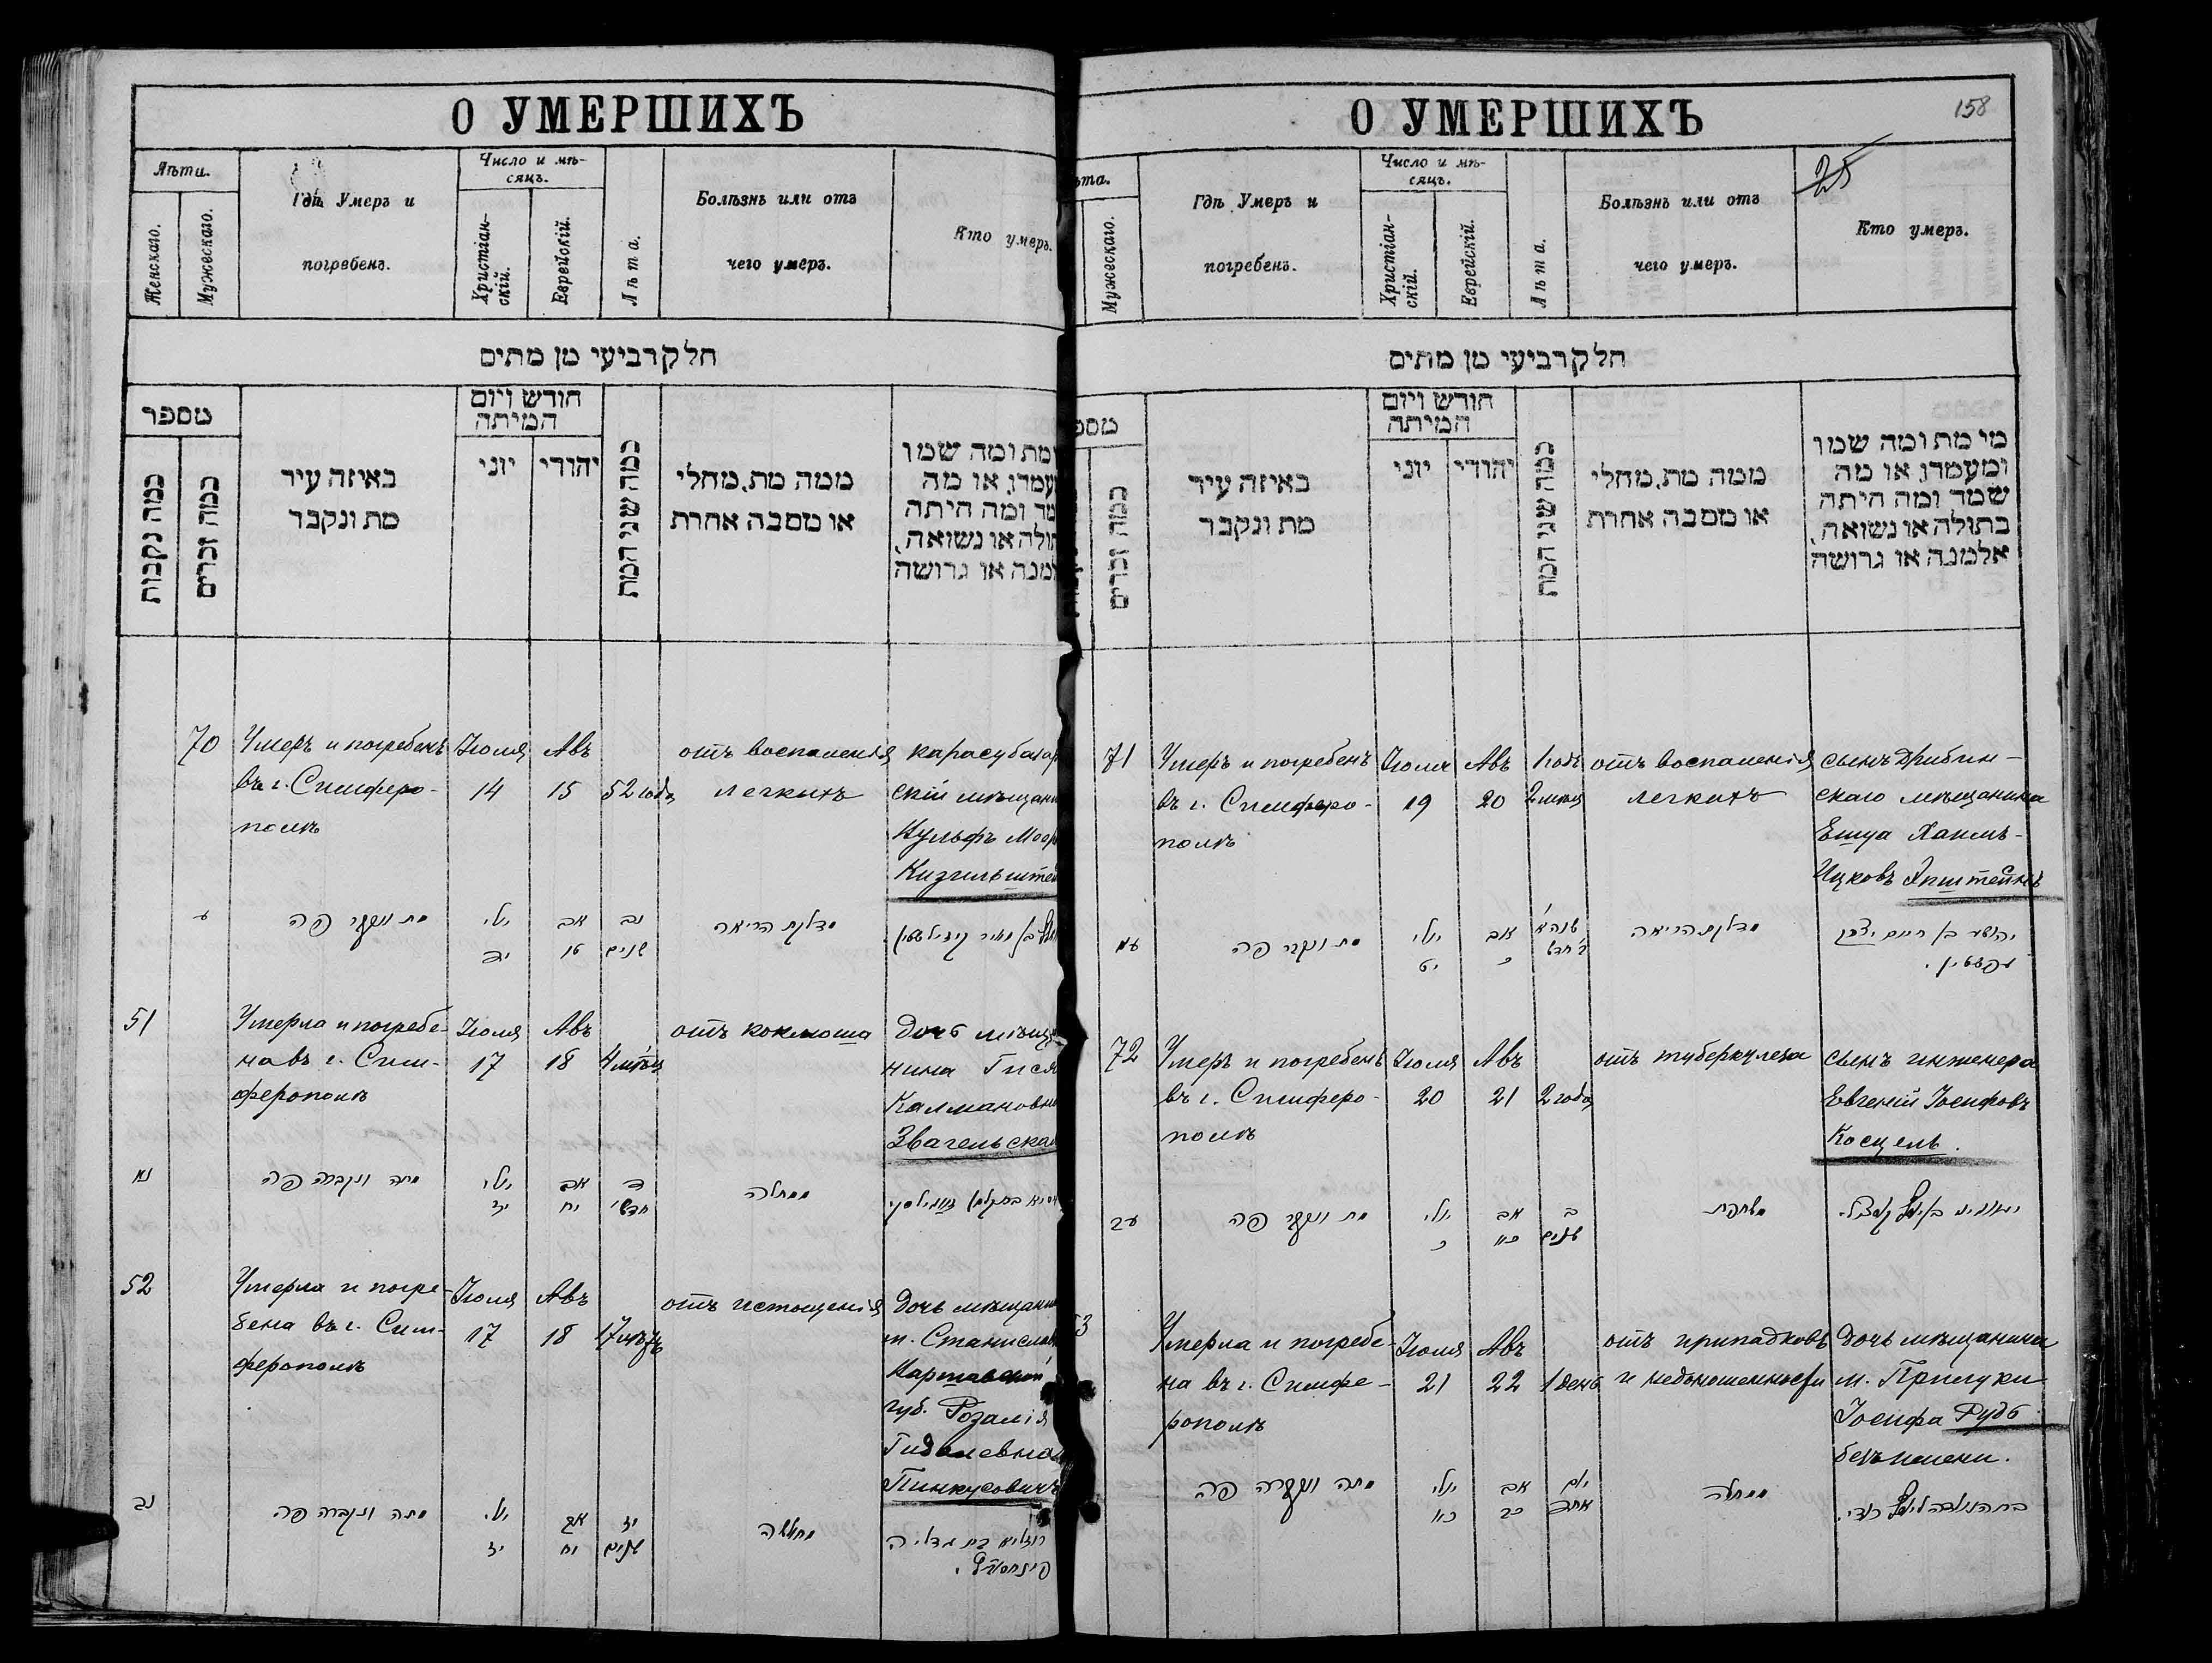 О УМЕРШИХЪ
Лѣти.
Женскаго.
Мужескаго.
Гдѣ Умеръ и
погребенъ.
Число и мѣ-
сяцъ.
Христіан-
скій.
Еврейскій.
Лѣта.
Болѣзнь или отъ
чего умеръ.
Кто умеръ.
חלק רביעי מן מתים
מספר
כמה נקבות
כמה זכרים
באיזה עיר
מת ונקבר
חודש ויום
המיתה
יוני
יהודי
כמה שני המת
ממה מת, מחלי
או מסבה אחרת
מת ומה שמו
או מה
ומה היתה
או נשואה,
או גרושה
70
Умеръ и погребенъ
въ г. Симферо-
полѣ
Іюля
14
Авъ
15
52 года
отъ воспаленія
легкихъ
карасубазар
скій мѣщани
Вульфъ
Кизильштей
מת ונקבר פה
יולי
יד
אב
טו
נב
שנים
מדלקת הריאה
51
Умерла и погребе-
на въ г. Сим-
ферополѣ
Іюля
17
Авъ
18
4 мѣся
отъ коклюша
дочь мѣща
нина Гися
Калмановна
Звагельская
נא
מתה ונקברה פה
יולי
יז
אב
יח
ד
חדשי
52
Умерла и погре-
бена въ г. Сим-
ферополѣ
Іюля
17
Авъ
18
17
отъ истощенія
дочь мѣщани
м. Станислав
Варшавской
губ. Розалія
Гидалевна
Пинкусовичъ
נב
מתה ונקברה פה
יולי
יז
אב
יח
יז
שנים
מחולשה
רוזליא בת גדליה
О УМЕРШИХЪ
158
25
ѣта.
Мужескаго.
Гдѣ Умеръ и
погребенъ.
Число и мѣ-
сяцъ.
Христіан-
скій.
Еврейскій.
Лѣта.
Болѣзнь или отъ
чего умеръ.
Кто умеръ.
חלק רביעי מן מתים
מספ
כמה זכרים
באיזה עיר
מת ונקבר
חודש ויום
המיתה
יוני
יהודי
כמה שני המת
ממה מת, מחלי
או מסבה אחרת
מי מת ומה שמו
ומעמדו, או מה
שמה ומה היתה
בתולה או נשואה,
אלמנה או גרושה
71
Умеръ и погребенъ
въ г. Симферо-
полѣ
Іюля
19
Авъ
20
1 годъ
2 мѣся
отъ воспаленія
легкихъ
сынъ Дрибин-
скаго мѣщанина
Ешуа Хаимъ-
Ицковъ Эпштейнъ
עא
מת ונקבר פה
יולי
יט
אב
כ
מדלקת הריאה
יהושע בן חיים יצחק
עפשטיין.
72
Умеръ и погребенъ
въ г. Симферо-
полѣ
Іюля
20
Авъ
21
2 года
отъ туберкулеза
сынъ инженера
Евгеній Іосифовъ
Косцель.
עב
מת ונקבר פה
יולי
כ
אב
כא
ב
שנים
משחפת
53
Умерла и погребе-
на въ г. Симфе-
рополѣ
Іюля
21
Авъ
22
1 день
отъ припадковъ
и недоношенности
дочь мѣщанина
м. Прилуки
Іосифа Рудь
безъ имени.
מתה ונקברה פה
יולי
כא
אב
כב
יום
אחד